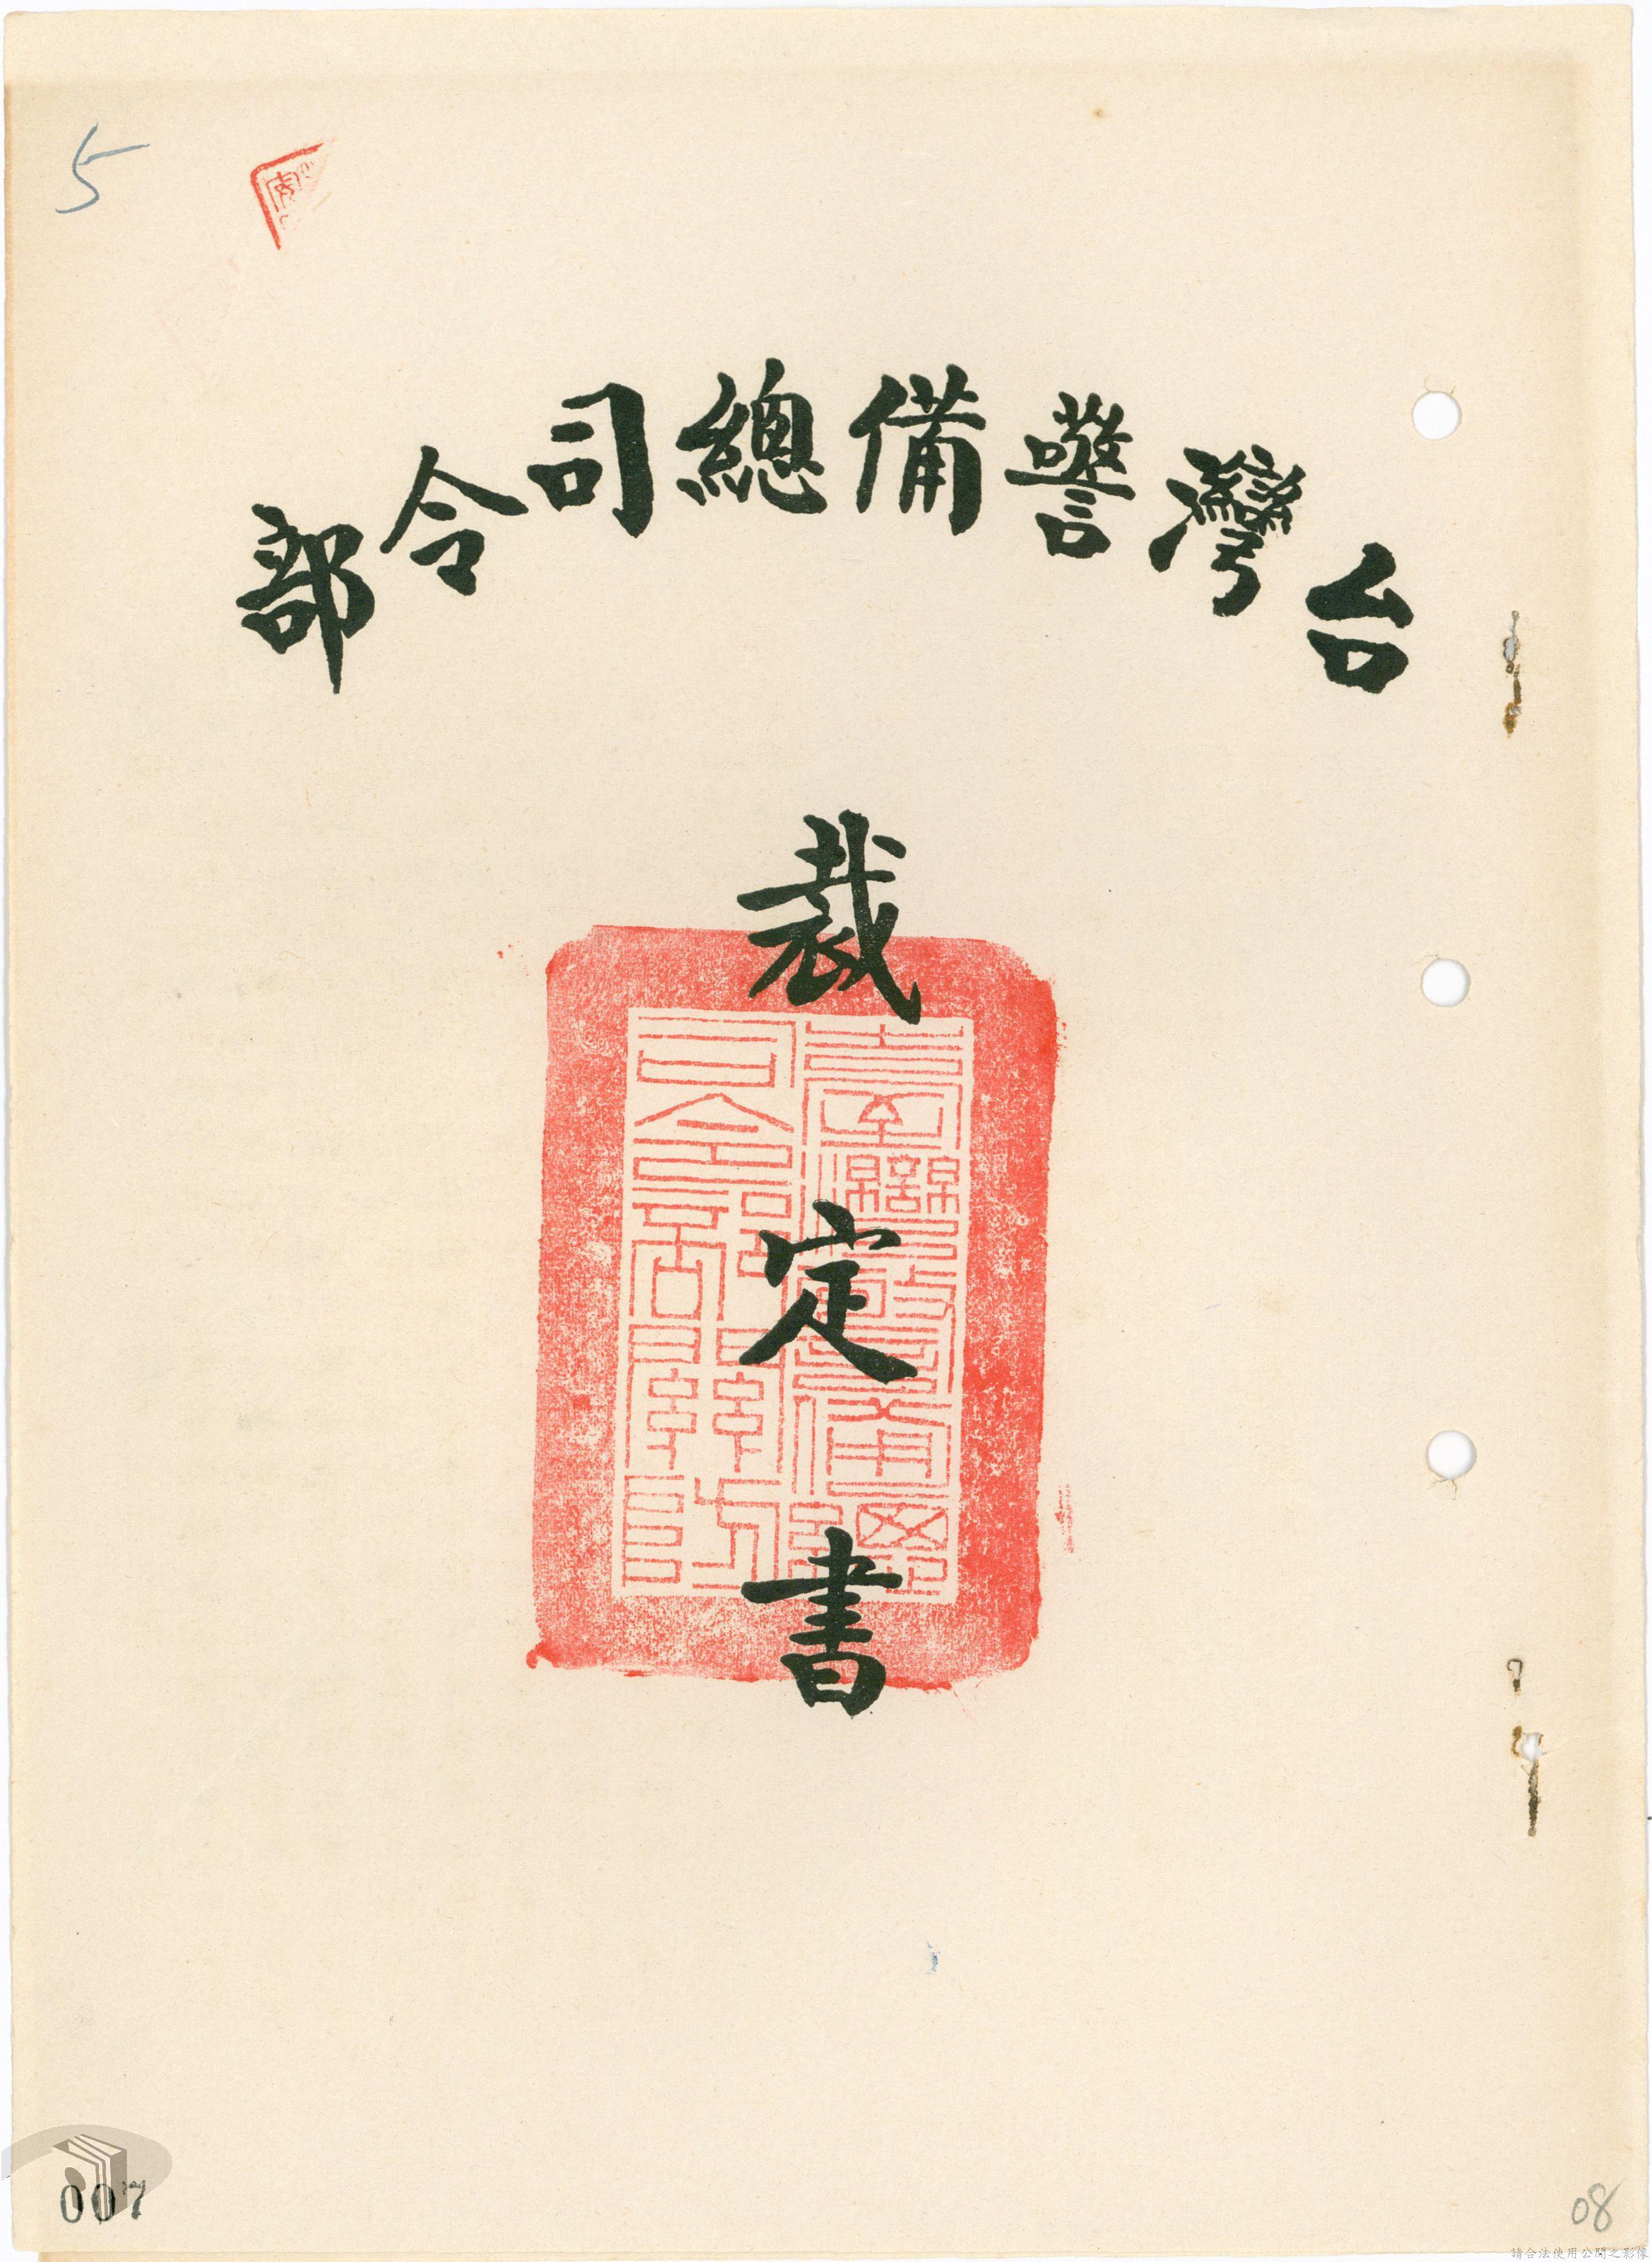 5
台灣警備總司令部
裁定書
臺灣警備總
司令部軍法
007
08
請合法使用公開之影像